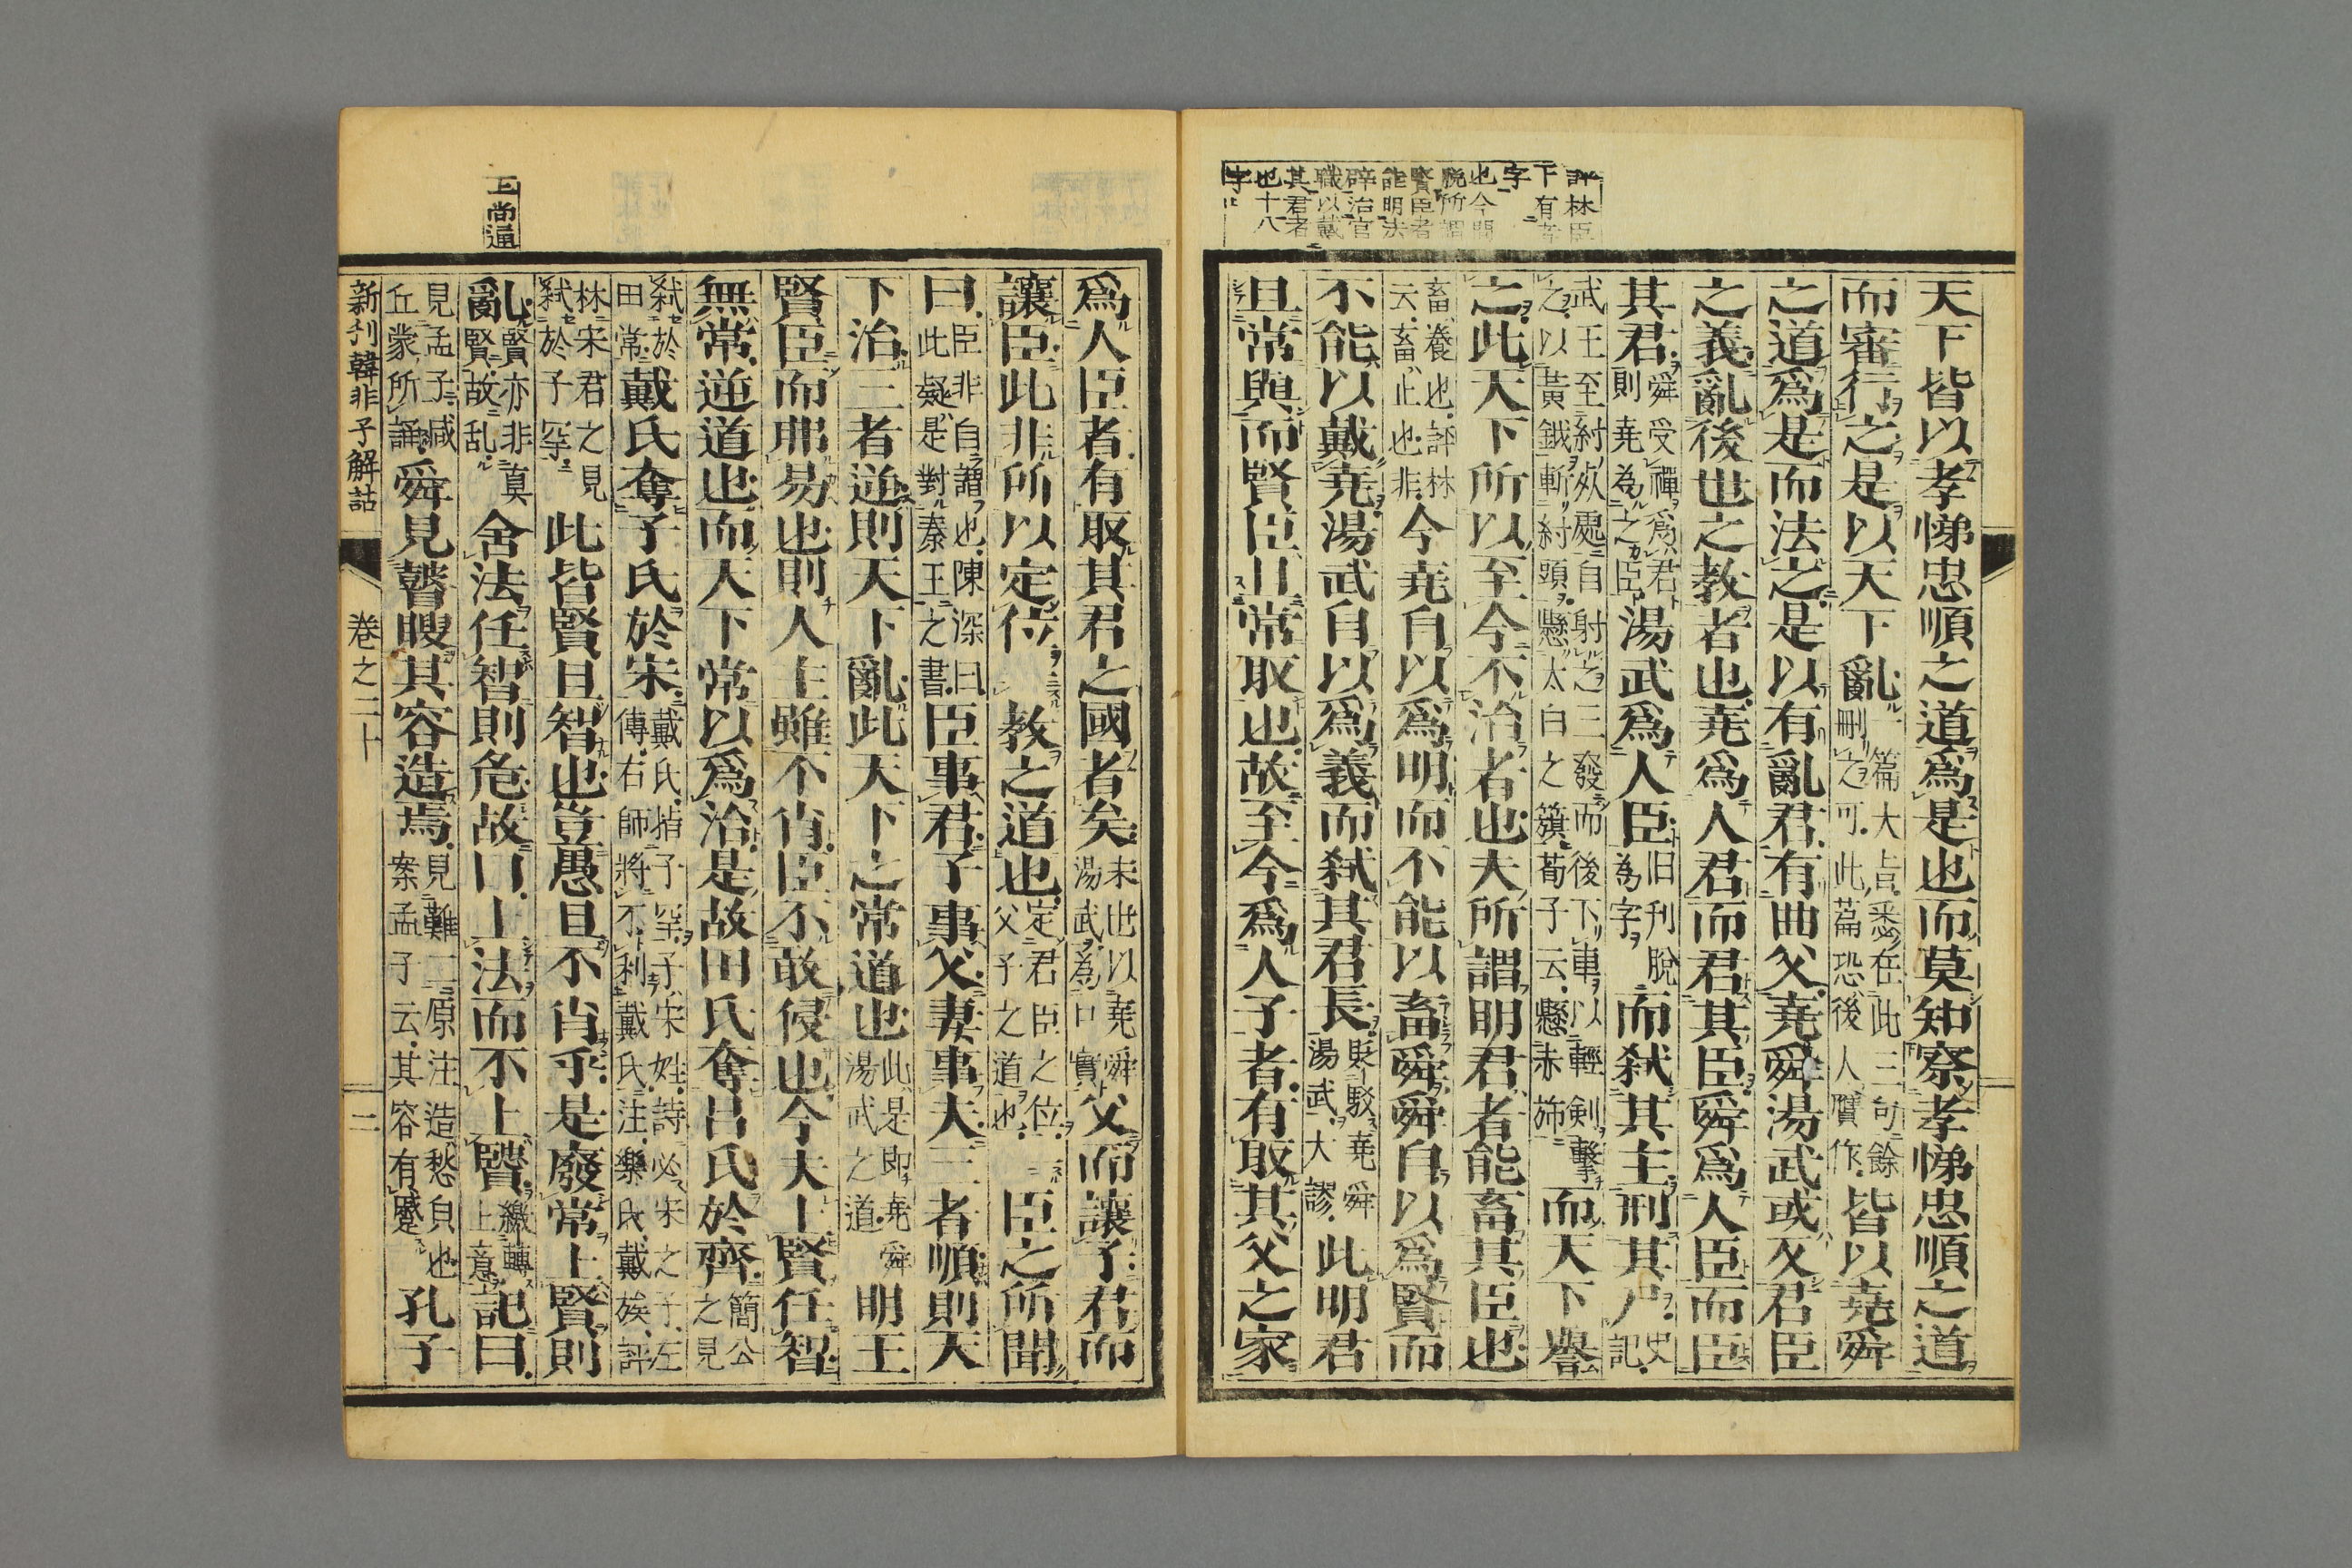 評林臣
下有者
字
也今間
脫所謂
賢臣者
能明法
辟治官
職以戴
其君者
也十八
字
天下皆以孝悌忠順之道爲是也而莫知察孝悌忠順之道
而審行之是以天下亂一篇大旨悉在此三句餘刪之可此篇恐後人贋作皆以堯舜
之道爲是而法之是以有亂君有曲父堯舜湯武或反君臣
之義亂後世之教者也堯爲人君而君其臣舜爲人臣而臣
其君舜受禪爲君則堯為之臣湯武爲人臣旧刊脫為字而弑其主刑其尸史記
武王至紂死處自射之三發而後下車以輕剣擊之以黃鉞斬紂頭懸太白之籏荀子云懸赤斾而天下譽
之此天下所以至今不治者也夫所謂明君者能畜其臣也
畜養也評林云畜止也非今堯自以爲明而不能以畜舜舜自以爲賢而
不能以戴堯湯武自以爲義而弑其君長貶駁堯舜湯武大謬此明君
且常與而賢臣且常取也故至今爲人子者有取其父之家
爲人臣者有取其君之國者矣未世以堯舜湯武為口實父而讓子君而
讓臣此非所以定位教之道也定君臣之位父子之道也臣之所聞
曰臣非自謂也陳深曰此疑是對秦王之書臣事君子事父妻事夫三者順則天
下治三者逆則天下亂此天下之常道也此是即堯舜湯武之道明王
賢臣而弗易也則人主雖不肖臣不敢侵也今夫上賢任智
無常逆道也而天下常以爲治是故田氏奪呂氏於齊簡公之見
弑於田常戴氏奪子氏於宋戴氏指子罕子宋姓詩必宋之子左傳右師將不利戴氏注樂氏戴族評
林宋君之見弑於子罕此皆賢且智也豈愚且不肖乎是廢常上賢則
亂賢亦非真賢故乱舍法任智則危故曰上法而不上賢繳轉上意記曰
上尚通
見孟子咸丘蒙所誦舜見瞽瞍其容造焉見難二原注造愁皃也案孟子云其容有蹙孔子
新刊韓非子解詁　卷之二十　二